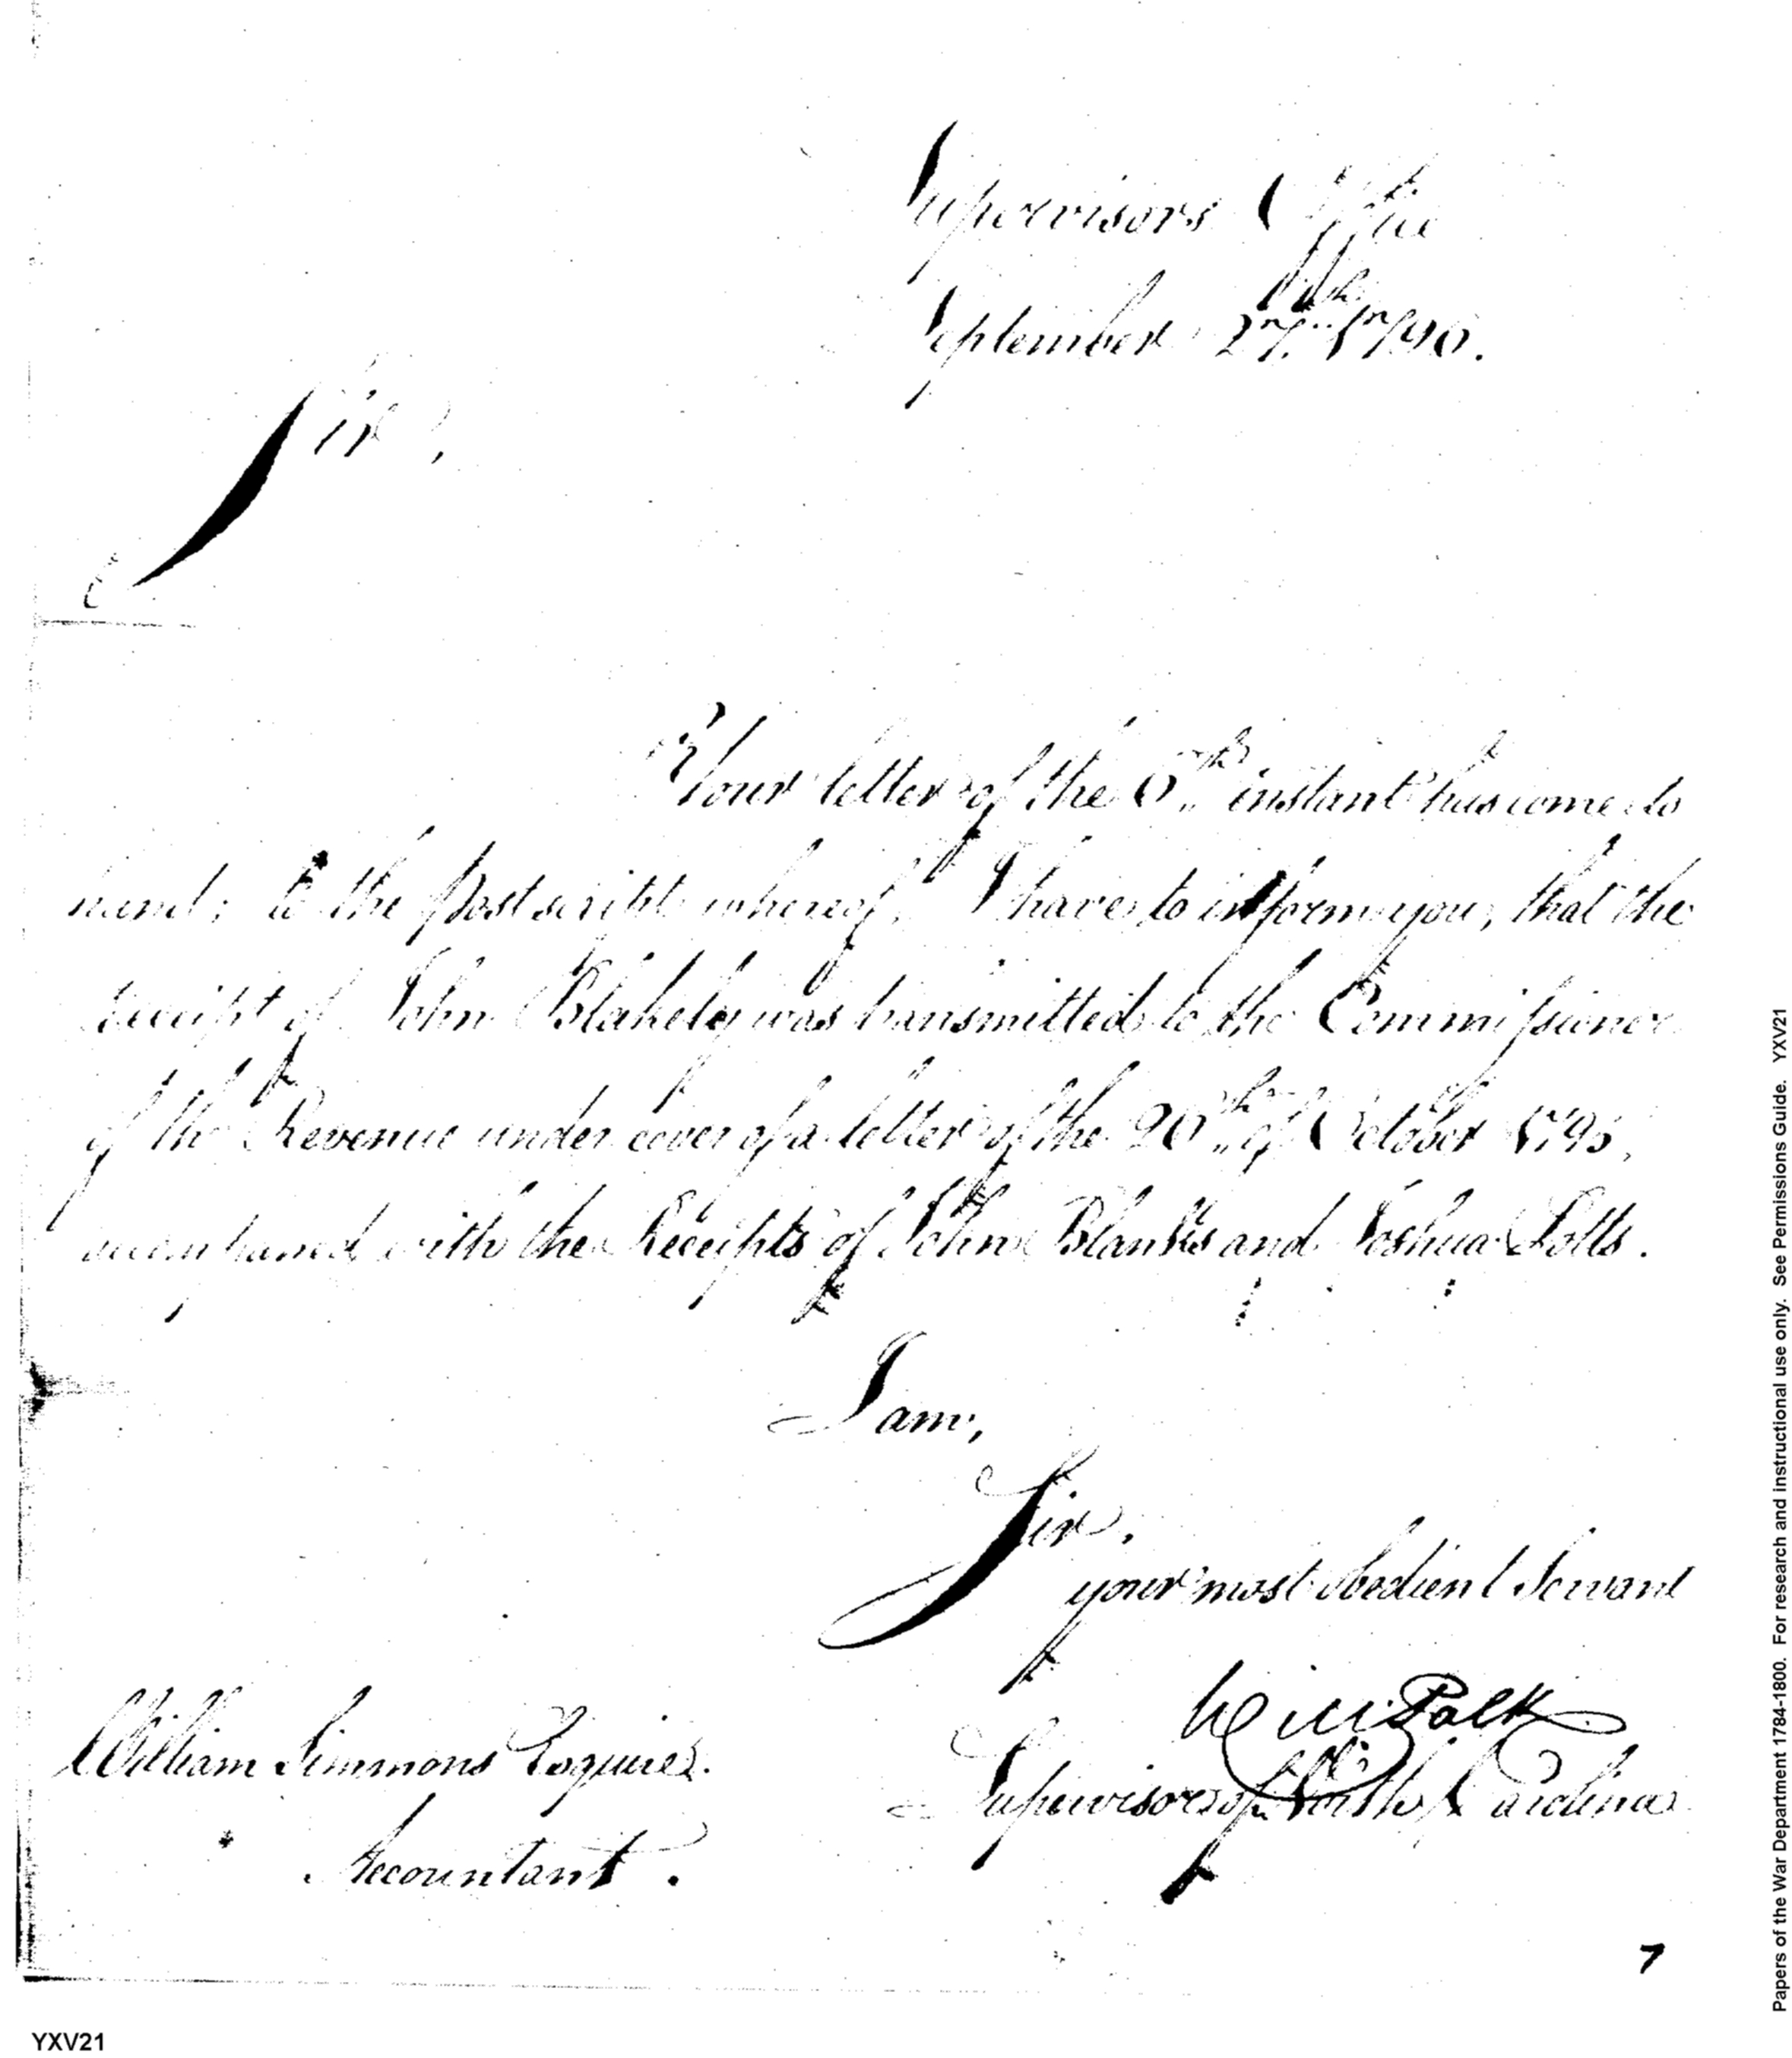 Supervisors Office
September 27th 1796.
Sir,
Your letter of the 6th instant has come to
hand; to the Postscript whereof, I have to inform you, that the
receipt of John Blakeley was transmitted to the Commissioner
of the Revenue under cover of a letter of the 20th of October 1795,
accompanied with the Receipts of John Blanks and Joshua Potts.
I am,
Sir,
your most obedient Servant
Will Polk
Supervisor of North Carolina
William Simmons Esquire.
Accountant.
7
YXV21
Papers of the War Department 1784-1800. For research and instructional use only. See Permissions Guide. YXV21